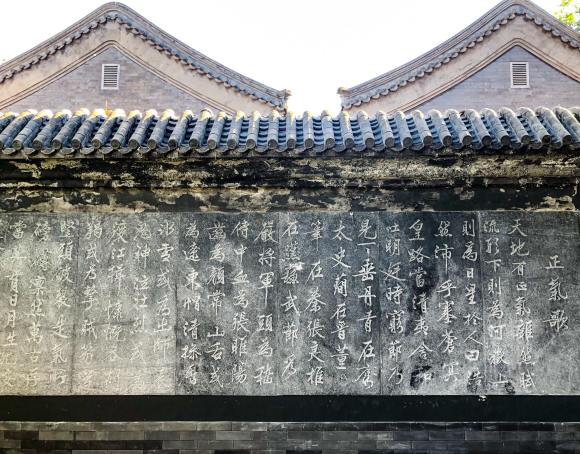 正氣歌
天地有正氣雜然賦
流形下則為河嶽上
則為日星於人曰浩
然沛乎塞蒼冥
皇路當清夷含和
吐明廷時窮節乃
見一一垂丹青在齊
太史簡在晉董狐
筆在秦張良椎
在漢蘇武節為
嚴將軍頭為嵇
侍中血為張睢陽
齒為顏常山舌或
為遼東帽清操厲
冰雪或為出師表
鬼神泣壯烈
渡江楫慷慨吞
羯或為擊賊笏逆
豎頭破裂是氣所
磅礴凜烈萬古存
當日月生死